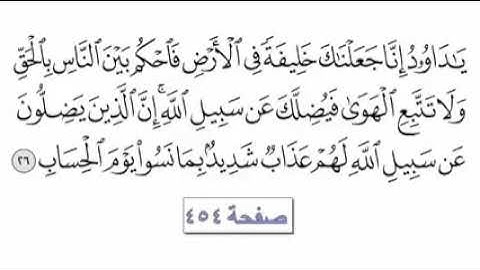 يَٰدَاوُۥدُ إِنَّا جَعَلْنَٰكَ خَلِيفَةً فِي ٱلْأَرْضِ فَٱحْكُم بَيْنَ ٱلنَّاسِ بِٱلْحَقِّ
وَلَا تَتَّبِعِ ٱلْهَوَىٰ فَيُضِلَّكَ عَن سَبِيلِ ٱللَّهِ ۚ إِنَّ ٱلَّذِينَ يَضِلُّونَ
عَن سَبِيلِ ٱللَّهِ لَهُمْ عَذَابٌ شَدِيدٌۢ بِمَا نَسُوا۟ يَوْمَ ٱلْحِسَابِ ٢٦
صفحة ٤٥٤